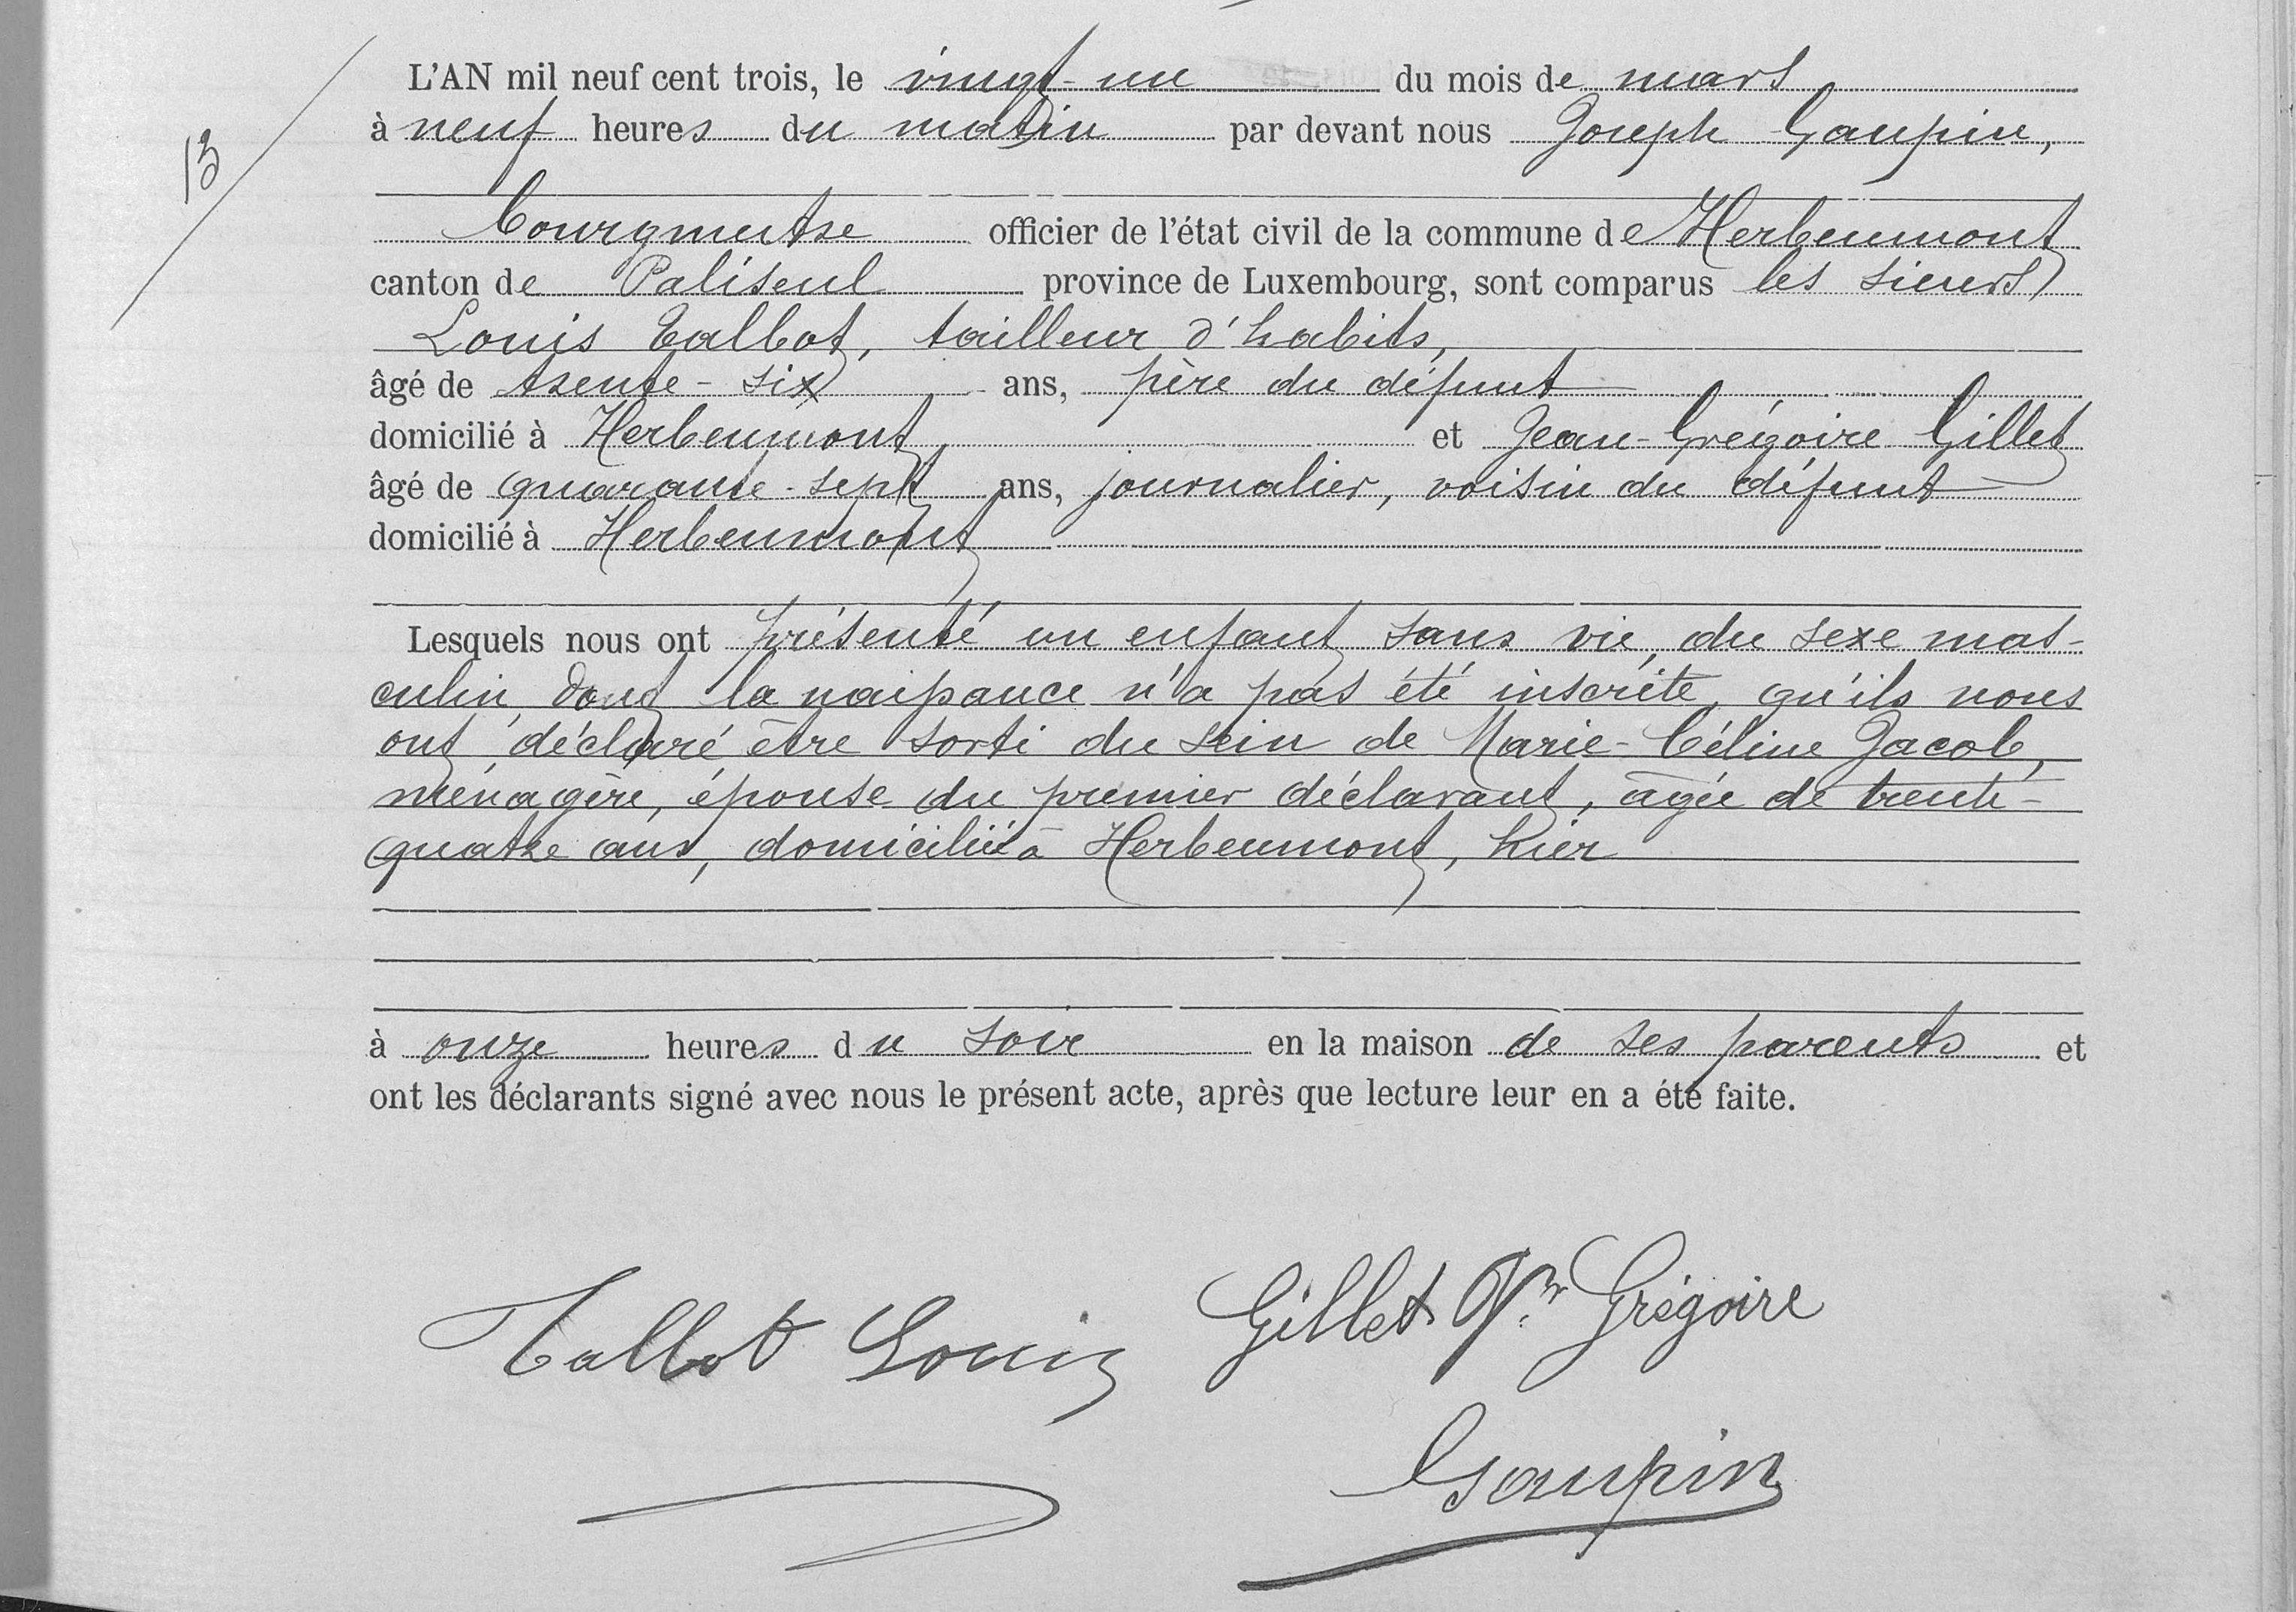 13
L'AN mil neuf cent trois, le vingt-un du mois de mars
à neuf heures du matin par devant nous Joseph Gaupin,
Bourgmestre officier de l'état civil de la commune de Herbeumont
canton de Paliseul province de Luxembourg, sont comparus les sieurs
Louis Talbot, tailleur d'habits,
âgé de trente-six ans, père du défunt
domicilié à Herbeumont et Jean-Grégoire Gillet
âgé de quarante-sept ans, journalier, voisin du défunt
domicilié à Herbeumont
Lesquels nous ont présenté un enfant sans vie, du sexe mas-
culin, dont la naissance n'a pas été inscrite, qu'ils nous
ont déclaré être sorti du sein de Marie-Céline Jacob,
ménagère, épouse du premier déclarant, âgée de trente-
quatre ans, domiciliée à Herbeumont, hier
à onze heures du soir en la maison de ses parents et
ont les déclarants signé avec nous le présent acte, après que lecture leur en a été faite.
Talbot Louis Gillet Grégoire
Gaupin